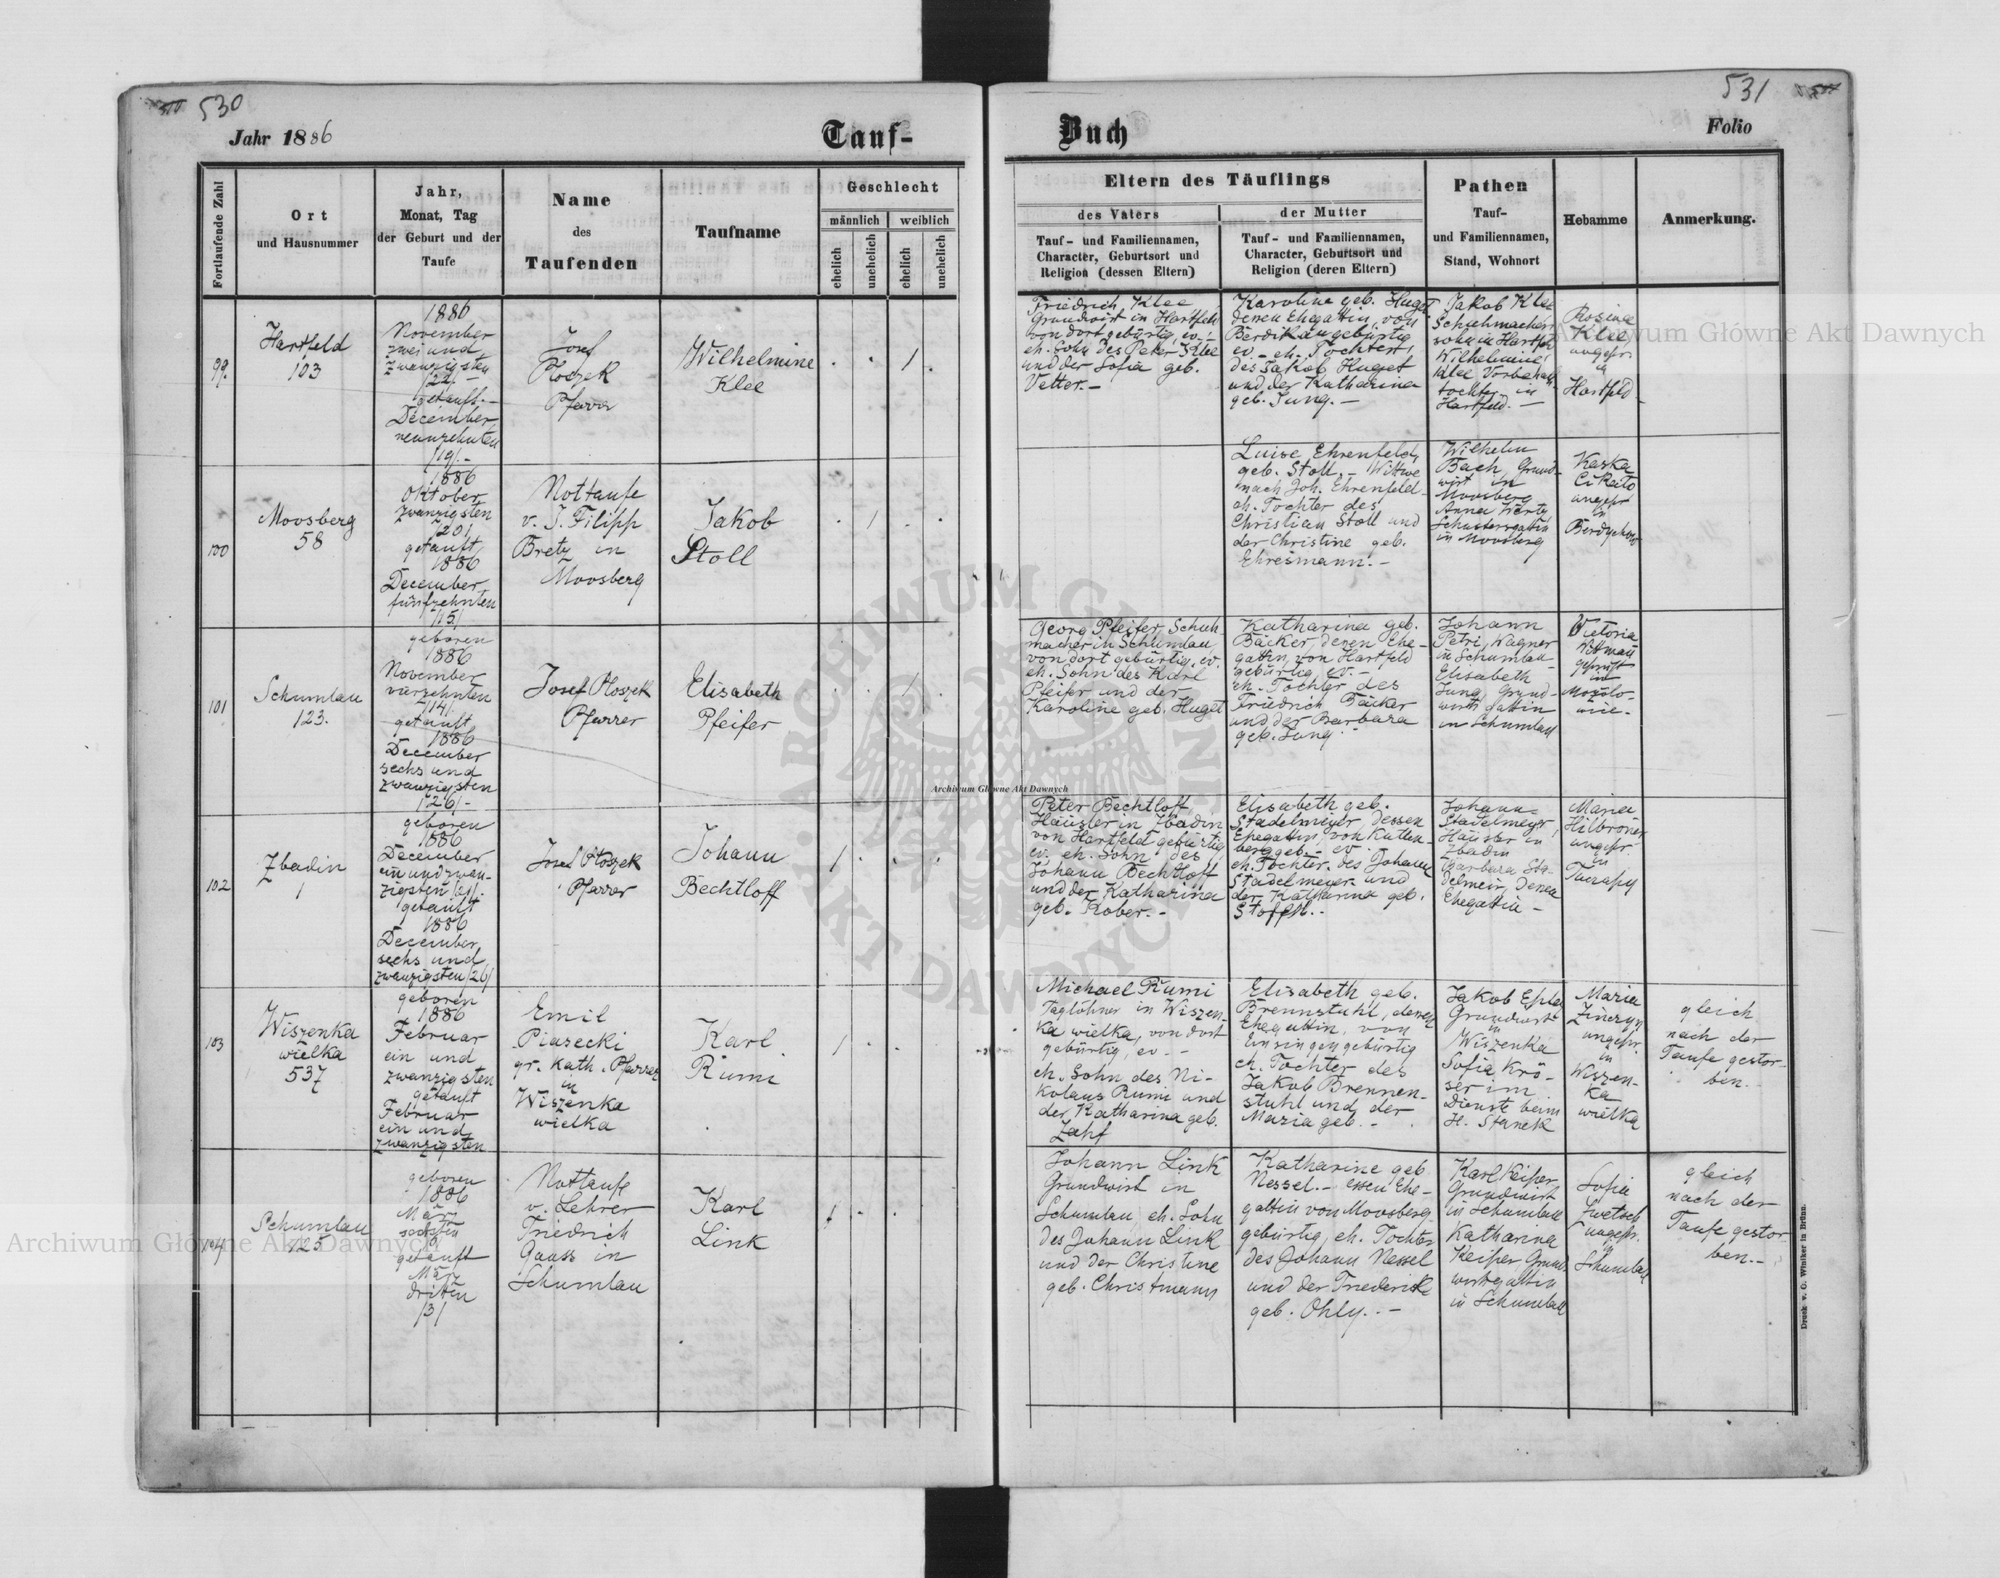 530
531
Jahr 1886
Tauf-
Buch
Folio
Fortlaufende Zahl
Ort
und Hausnummer
Jahr,
Monat, Tag
der Geburt und der
Taufe
Name
des
Taufenden
Taufname
Geschlecht
männlich
weiblich
ehelich
unehelich
ehelich
unehelich
Eltern des Täuflings
des Vaters
Tauf- und Familiennamen,
Character, Geburtsort und
Religion (dessen Eltern)
der Mutter
Tauf- und Familiennamen,
Character, Geburtsort und
Religion (deren Eltern)
Pathen
Tauf-
und Familiennamen,
Stand, Wohnort
Hebamme
Anmerkung.
99.
Hartfeld
103
1886
November
zwei und
zwanzigsten
/22/ -
getauft. -
December
neunzehnten
/19/. -
Josef
Ploszek
Pfarrer
Wilhelmine
Klee
1
Friedrich Klee
Grundwirt in Hartfeld
von dort gebürtig, ev. -
eh. Sohn des Peter Klee
und der Sofia geb.
Vetter. -
Karoline geb. Huget
deren Ehegattin, von
Berdikau gebürtig
ev. - eh. Tochter
des Jakob Huget
und der Katharina
geb. Jung. -
Jakob Klee
Schuhmachers
sohn in Hartfeld
Wilhelmine
Klee
tochter in
Hartfeld. -
Rosina
Klee
ungepr.
in
Hartfeld -
100
Moosberg
58
1886
Oktober
zwanzigsten
/20/
getauft
1886
December
fünfzehnten
/15/
Nottaufe
v. J. Filipp
Bretz in
Moosberg
Jakob
Stoll
1
Luise Ehrenfeld
geb. Stoll. - Wittwe
nach Joh. Ehrenfeld -
eh. Tochter des
Christian Stoll und
der Christine geb.
Ehresmann. -
Wilhelm
Bach, Grund-
wirt in
Moosberg
Anna Wirtz
Schustersgattin
in Moosberg
Kaska
ungepr
in
101
Schumlau
123.
geboren
1886
November
vierzehnten
/14/.
getauft
1886
December
sechs und
zwanzigsten
/26/ -
Josef Ploszek
Pfarrer
Elisabeth
Pfeifer
1
Georg Pfeifer, Schuh-
macher in Schumlau,
von dort gebürtig, ev.
eh. Sohn des Karl
Pfeifer und der
Karoline geb. Huget
Katharina geb.
Bäcker, deren Ehe-
gattin, von Hartfeld
gebürtig, ev. -
eh. Tochter des
Friedrich Bäcker
und der Barbara
geb. Jung. -
Johann
Petri, Wagner
in Schumlau -
Elisabeth
Jung, Grund-
wirts gattin
in Schumlau
Victoria
geprüft
in
102
Zbadin
1
geboren
1886
December
ein und zwan-
zigsten /21/.
getauft
1886
December
sechs und
zwanzigsten /26/
Josef Ploszek
Pfarrer
Johann
Bechtloff
1
Peter Bechtloff,
Häusler in Zbadin
von Hartfeld gebürtig
ev. eh. Sohn des
Johann Bechtloff
und der Katharina
geb. Kober. -
Elisabeth geb.
Stadelmeyer, dessen
Ehegattin, von Kutten
berg geb. - ev.
eh. Tochter des Johann
Stadelmeyer und
der Katharina geb.
Stoffel. -
Johann
Stadelmeyer,
Häusler in
Zbadin
Barbara Sta-
delmeir, deren
Ehegattin -
Maria
ungepr.
in
103
Wiszenka
wielka
537
geboren
1886
Februar
ein und
zwanzigsten
getauft
Februar
ein und
zwanzigsten
Emil
Piasecki
gr. kath. Pfarrer
in
Wiszenka
wielka
Karl
Rumi
1
Michael Rumi
Taglöhner in Wiszen-
ka wielka, von dort
gebürtig, ev. -
eh. Sohn des Ni-
kolaus Rumi und
der Katharina geb.
Zapf
Elisabeth geb.
Brennstuhl, deren
Ehegattin, von
Einsingen gebürtig
eh. Tochter des
Jakob Brennen-
stuhl und der
Maria geb. -
Jakob
Grundwirt
in
Wiszenka
Sofia Krö-
ser im
Dienste beim
H. Stanek
Maria
ungepr.
in
Wiszen-
ka
wielka
gleich
nach der
Taufe gestor-
ben. -
104
Schumlau
125
geboren
1886
März
getauft
März
dritten
/3/
Nottaufe
v. Lehrer
Friedrich
Gauss in
Schumlau
Karl
Link
1
Johann Link
Grundwirt in
Schumlau, eh. Sohn
des Johann Link
und der Christine
geb. Christmann
Katharine geb
Nessel. - essen Ehe-
gattin von Moosberg
gebürtig, eh. Tochter
des Johann Nessel
und der Friedericke
geb. Ohly. -
Karl Keiper
Grundwirt
in Schumlau
Katharina
Keiper Grund
wirtsgattin
in Schumlau
Sofia
ungepr.
in
Schumlau
gleich
nach der
Taufe gestor-
ben. -
Druck v. G. Winiker in Brünn.
Archiwum Główne Akt Dawnych
Archiwum Główne Akt Dawnych
Archiwum Główne Akt Dawnych
ARCHIWUM GŁÓWNE AKT DAWNYCH